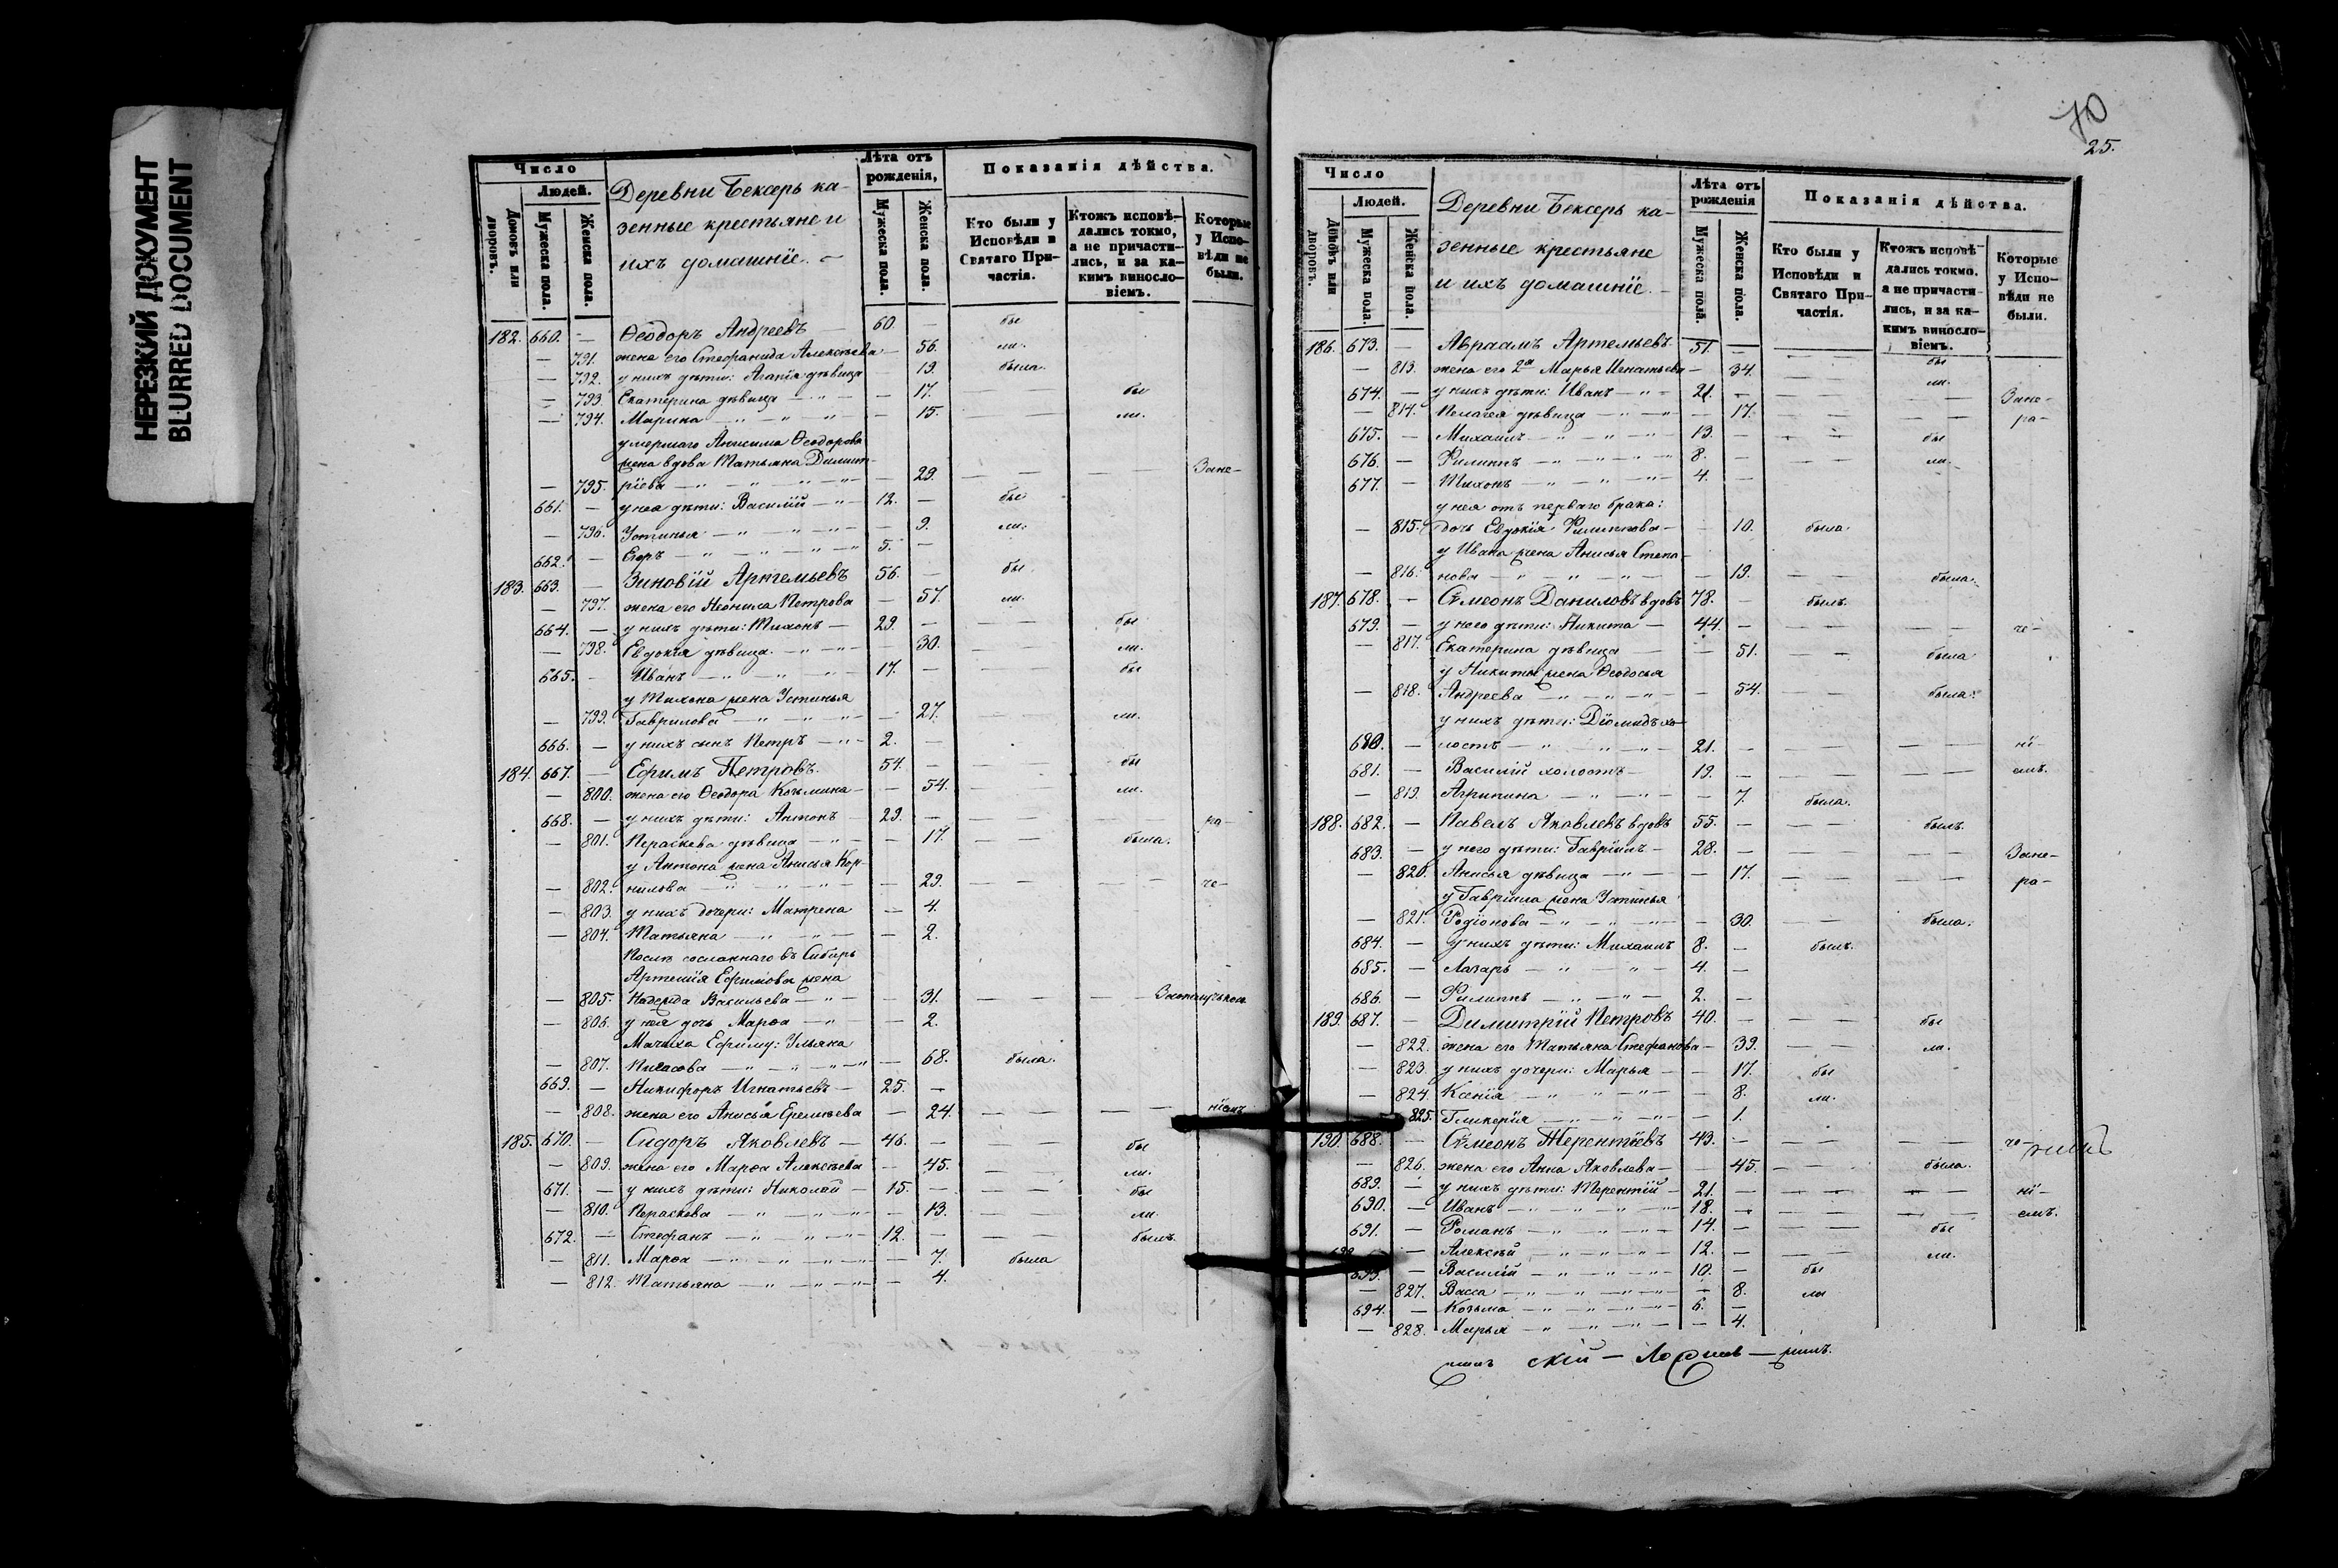 НЕРЕЗКИЙ ДОКУМЕНТ
BLURRED DOCUMENT
Число
Людей.
Домовъ или дворовъ.
Мужеска пола.
Женска пола.
Деревни Бексеръ ка-
зенные крестьяне и
ихъ домашніе.
Лѣта отъ рожденія,
Мужеска пола.
Женска пола.
Показанія дѣйства.
Кто были у Исповѣди и Святаго При-частія.
Ктожъ исповѣ-дались токмо, а не причасти-лись, и за ка-кимъ винословіемъ.
Которые у Испо-вѣди не были.
182. 660. — Ѳеодоръ Андреевъ — 60. — бы
— 791. жена его Стефанида Алексѣева — 56. ли.
— 792. у нихъ дѣти: Агапія дѣвица — 19. была.
— 793. Екатерина дѣвица — " — — 17. бы
— 794. Марина — " — " — — 15. — — ли.
умершаго Анисима Ѳеодорова
жена вдова Матьяна Димит-
— 795. ріева — " — " — " — " — — 29. — — — — Зане-
661. — у нея дѣти: Василій — " — 12. — бы
— 796. Устинья — " — " — " — — 9. ли.
662. — Егоръ — " — " — " — " 5. —
183. 663. — Зиновій Артемьевъ 56. — бы
— 797. жена его Неонила Петрова — 57. ли.
664. — у нихъ дѣти: Тихонъ — 29. — — — бы
— 798. Евдокія дѣвица — " — " — — 30. — — ли.
665. — Иванъ — " — " — " — 17. — — — бы
у Тихона жена Устинья
— 799. Гаврилова — " — " — " — — 27. — — ли.
666. — у нихъ сынъ Петръ — " — 2. —
184. 667. — Ефимъ Петровъ. 54. — — — бы
— 800. жена его Ѳеодора Козьмина — — 54. — — ли.
668. — у нихъ дѣти: Антонъ — 29. — — — — — ра-
— 801. Пераскева дѣвица — " — — 17. — — была.
у Антона жена Анисья Кор-
— 802. нилова — " — " — " — — 29. — — — — че-
— 803. у нихъ дочери: Матрена — 4.
— 804. Татьяна — " — " — — 2.
Послѣ сосланнаго въ Сибирь
Артемія Ефимова жена
— 805. Надежда Васильева — " — — 31. — — — —
— 806. у нея дочь Марѳа — " — — 2.
Мачиха Ефиму: Ульяна
— 807. — " — " — " — " — 68. была.
669. — Никифоръ Игнатьевъ — 25. —
— 808. жена его Анисья Еремѣева — 24. — — — — ніемъ
185. 670. — Сидоръ Яковлевъ — 46. — — — бы
— 809. жена его Марѳа Алексѣева — 45. — — ли.
671. — у нихъ дѣти: Николай — 15. — — — бы
— 810. Пераскева — " — " — " — — 13. — — ли.
672. — Стефанъ — " — " — " — 12. — — — былъ.
— 811. Марѳа — " — " — " — — 7. была
— 812. Татьяна — " — " — " — — 4.
70
25.
Число
Людей.
Домовъ или дворовъ.
Мужеска пола.
Женска пола.
Деревни Бексеръ ка-
зенные крестьяне
и ихъ домашніе.
Лѣта отъ рожденія
Мужеска пола.
Женска пола.
Показанія дѣйства.
Кто были у Исповѣди и Святаго При-частія.
Ктожъ исповѣ-дались токмо, а не причасти-лись, и за ка-кимъ винословіемъ.
Которые у Испо-вѣди не были.
186. 673. — Авраамъ Артемьевъ 51. — — — бы
— 813. жена его 2я Марья Игнатьева — 34. — — ли.
674. — у нихъ дѣти: Иванъ — " — 21. — — — — Зане-
— 814. Пелагея дѣвица — " — " — 17. — — — ра-
675. — Михаилъ — " — " — " — 13. — — — бы
676. — Филиппъ — " — " — " — 8. — — — ли.
677. — Тихонъ — " — " — " — 4. —
у нея отъ перваго брака:
— 815. дочь Евдокія Филиппова — — 10. была.
у Ивана жена Анисья Степа-
— 816. нова — " — " — " — — 19. — — была.
187. 678. — Сѵмеонъ Даниловъ вдовъ 78. — былъ.
679. — у него дѣти: Никита — 44. — — — — — че-
— 817. Екатерина дѣвица — — 51. — — была
у Никиты жена Ѳеодосья
— 818. Андреева — " — " — " — — 54. — — была.
у нихъ дѣти: Діомидъ хо-
680. — лостъ — " — " — " — 21. — — — — — ні-
681. — Василій холостъ — 19. — — — — — емъ.
— 819. Агрипина — " — " — — 7. была.
188. 682. — Павелъ Яковлевъ вдовъ 55. — — — былъ.
683. — у него дѣти: Гавріилъ — 28. — — — — — Зане-
— 820. Анисья дѣвица — " — — 17. — — — ра-
у Гавріила жена Устинья
— 821. Родіонова — " — " — " — — 30. — — была.
684. — у нихъ дѣти: Михаилъ 8. — былъ.
685. — Лазарь — " — " — 4. —
686. — Филиппъ — " — " — 2. —
189. 687. — Димитрій Петровъ 40. — — — бы
— 822. жена его Татьяна Стефанова — 39. — — ли.
— 823. у нихъ дочери: Марья — — 17. бы
— 824. Ксенія — " — " — " — — 8. ли.
— 825. Гликерія — " — " — " — — 1.
190. 688. — Сѵмеонъ Терентіевъ 43. — — — — — че-
— 826. жена его Анна Яковлева — — 45. — — была.
689. — у нихъ дѣти: Терентій — 21. — — — — — ні-
690. — Иванъ — " — " — " — 18. — — — — — емъ.
691. — Романъ — " — " — " — 14. — — — бы
— Алексѣй — " — " — " — 12. — — — ли.
693. — Василій — " — " — " — 10. — бы
— 827. Васса — " — " — " — — 8. ли
694. — Козьма — " — " — " — 6. —
— 828. Марья — " — " — " — — 4.
скій —